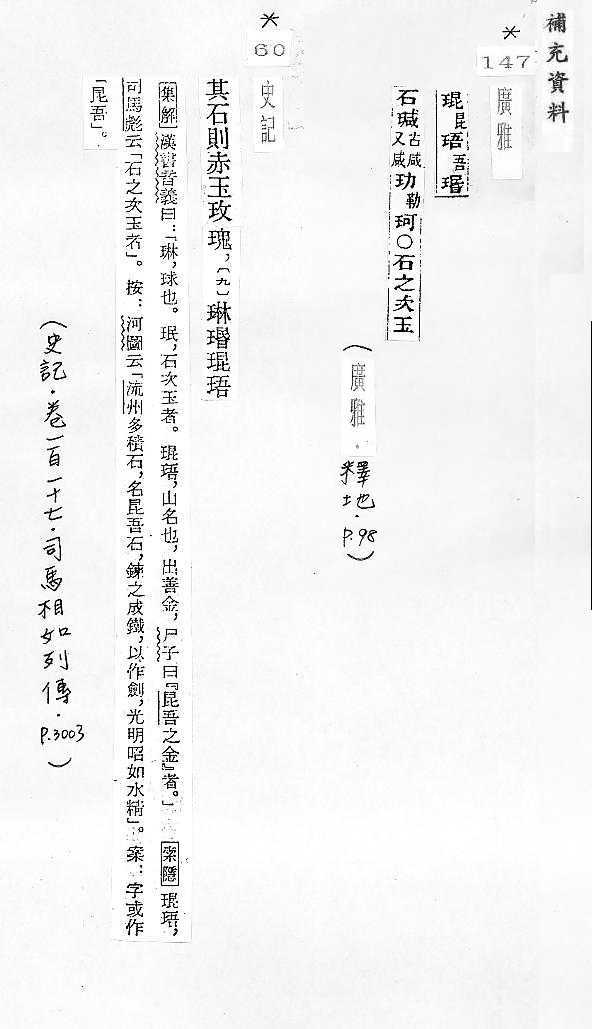 補充資料
*
147
廣雅
琨昆珸吾瑉
石瑊古咸又咸玏勒珂○石之次玉
(廣雅.釋地.P.98)
*
60
史記
其石則赤玉玫瑰,〔九〕琳瑉琨珸
集解漢書音義曰:「琳,球也。珉,石次玉者。琨珸,山名也,出善金,尸子曰『昆吾之金』者。」索隱琨珸,
司馬彪云「石之次玉者」。按:河圖云「流州多積石,名昆吾石,鍊之成鐵,以作劍,光明昭如水精」。案:字或作
「昆吾」。
(史記.卷一百一十七.司馬相如列傳.P.3003)